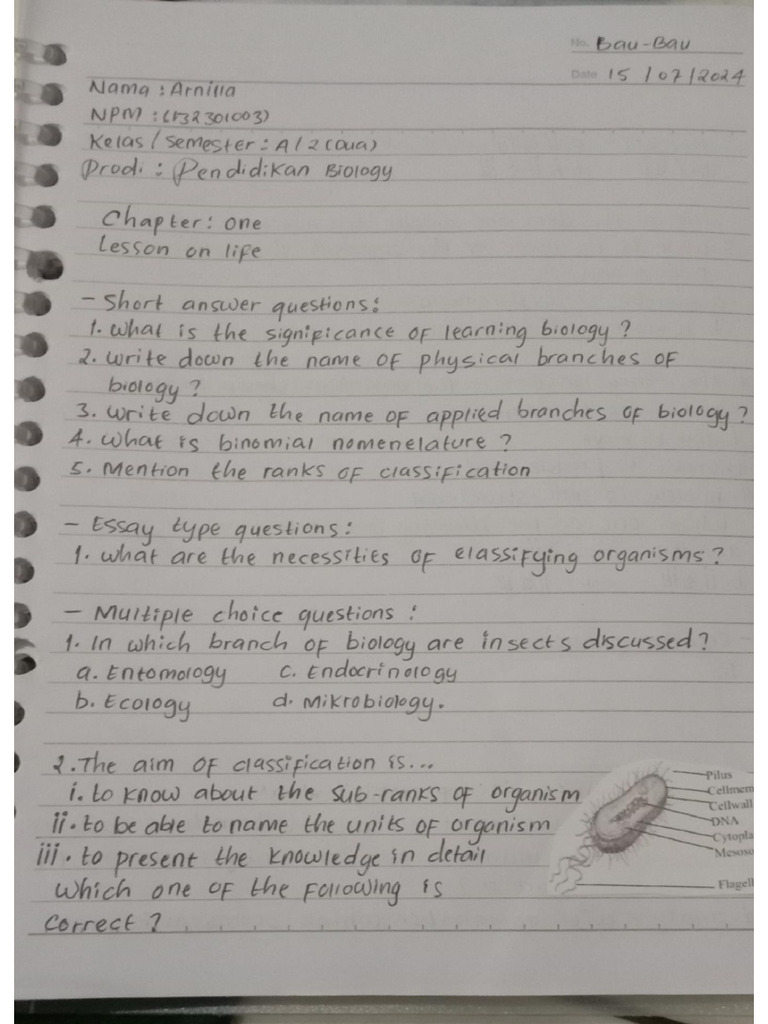 No. Bau-Bau
Date 15 / 07 / 2024
Nama : Arnilla
NPM : (132301003)
Kelas / Semester : A / 2 (Dua)
Prodi : Pendidikan Biology
Chapter : one
Lesson on life
- Short answer questions :
1. What is the significance of learning biology ?
2. Write down the name of physical branches of
biology ?
3. Write down the name of applied branches of biology ?
4. What is binomial nomenelature ?
5. Mention the ranks of classification
- Essay type questions :
1. What are the necessities of classifying organisms ?
- Multiple choice questions :
1. In which branch of biology are insects discussed ?
a. Entomology c. Endocrinology
b. Ecology d. Mikrobiology.
2. The aim of classification is...
i. to know about the sub-ranks of organism
ii. to be able to name the units of organism
iii. to present the knowledge in detail
which one of the following is
correct ?
Pilus
Cellmem
Cellwall
DNA
Cytopla
Mesoso
Flagell